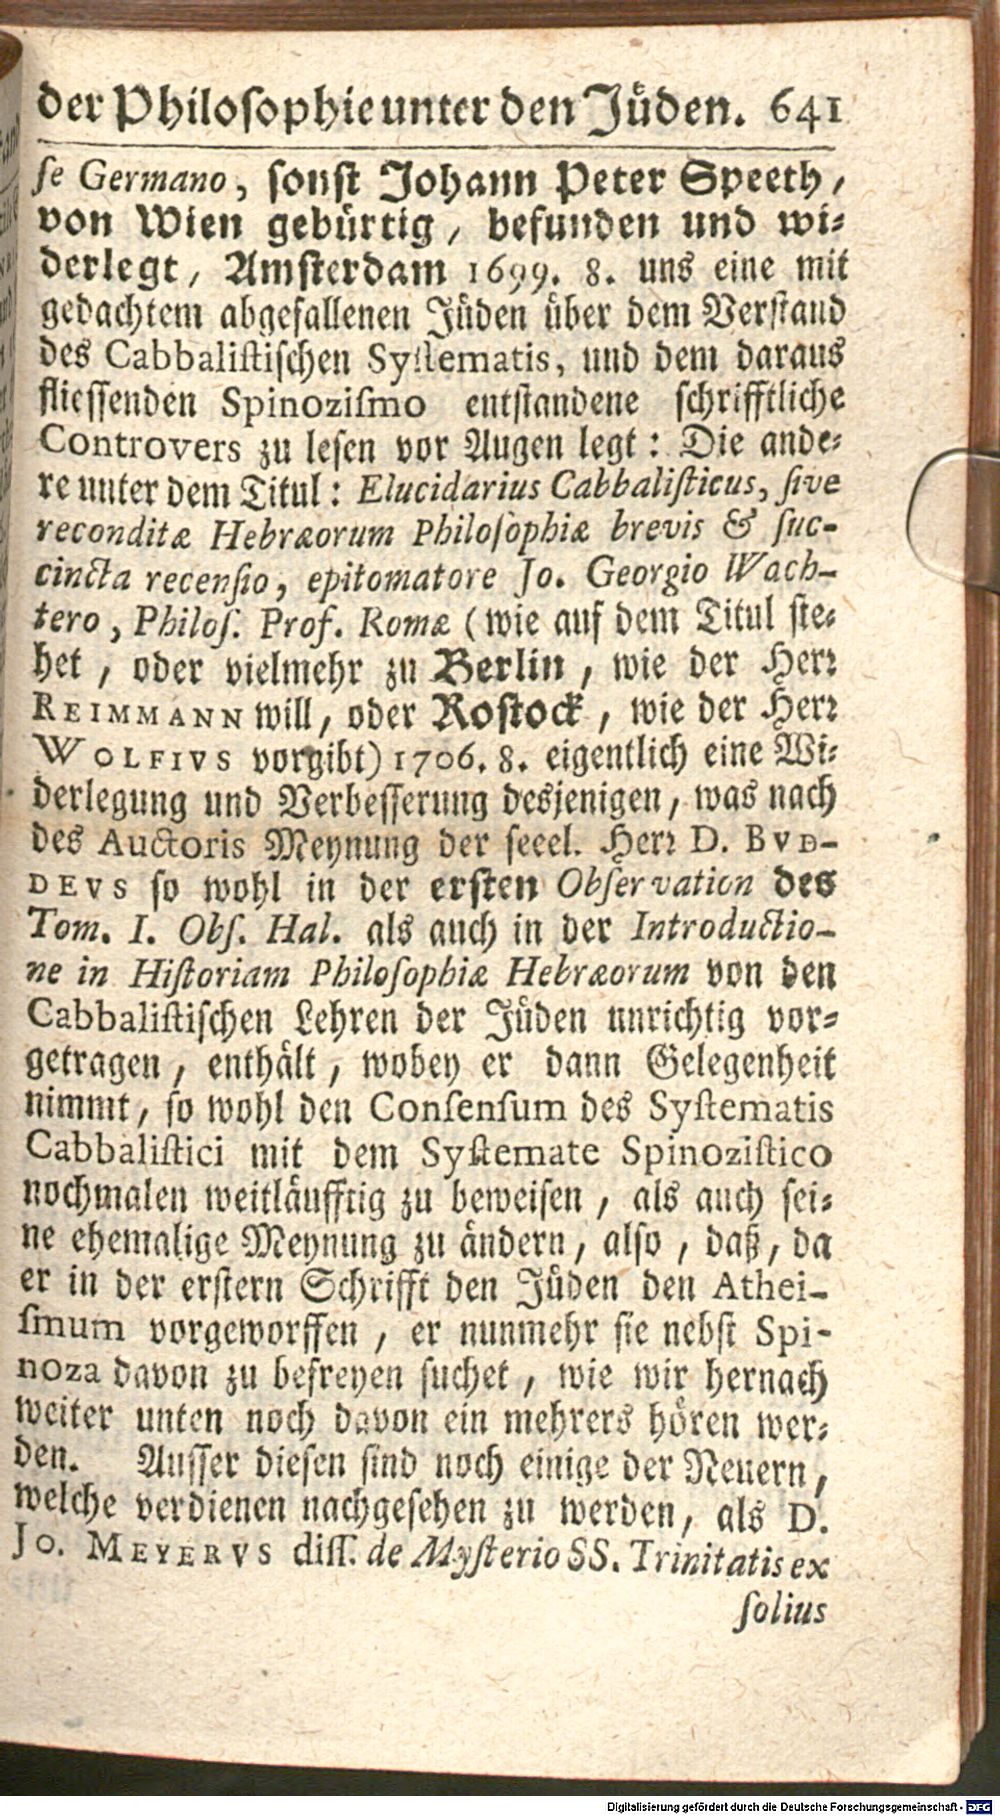 der Philosophie unter den Jüden. 641
ſe Germano, ſonſt Johann Peter Speeth,
von Wien gebürtig, befunden und wi-
derlegt, Amſterdam 1699. 8. uns eine mit
gedachtem abgefallenen Jüden über dem Verſtand
des Cabbaliſtiſchen Syſtematis, und dem daraus
flieſſenden Spinoziſmo entſtandene ſchrifftliche
Controvers zu leſen vor Augen legt: Die ande-
re unter dem Titul: Elucidarius Cabbaliſticus, ſive
reconditæ Hebræorum Philoſophiæ brevis & ſuc-
cincta recenſio, epitomatore Jo. Georgio Wach-
tero, Philoſ. Prof. Romæ (wie auf dem Titul ſte-
het, oder vielmehr zu Berlin, wie der Herr
REIMMANN will, oder Roſtock, wie der Herr
WOLFIVS vorgibt) 1706. 8. eigentlich eine Wi-
derlegung und Verbeſſerung desjenigen, was nach
des Auctoris Meynung der ſeeel. Herr D. BVD-
DEVS ſo wohl in der erſten Obſervation des
Tom. I. Obſ. Hal. als auch in der Introductio-
ne in Hiſtoriam Philoſophiæ Hebræorum von den
Cabbaliſtiſchen Lehren der Jüden unrichtig vor-
getragen, enthält, wobey er dann Gelegenheit
nimmt, ſo wohl den Conſenſum des Syſtematis
Cabbaliſtici mit dem Syſtemate Spinoziſtico
nochmalen weitläufftig zu beweiſen, als auch ſei-
ne ehemalige Meynung zu ändern, alſo, daß, da
er in der erſtern Schrifft den Jüden den Athei-
ſmum vorgeworffen, er nunmehr ſie nebſt Spi-
noza davon zu befreyen ſuchet, wie wir hernach
weiter unten noch davon ein mehrers hören wer-
den. Auſſer dieſen ſind noch einige der Neuern,
welche verdienen nachgeſehen zu werden, als D.
JO. MEYERVS diſſ. de Myſterio SS. Trinitatis ex
ſolius
Digitalisierung gefördert durch die Deutsche Forschungsgemeinschaft - DFG